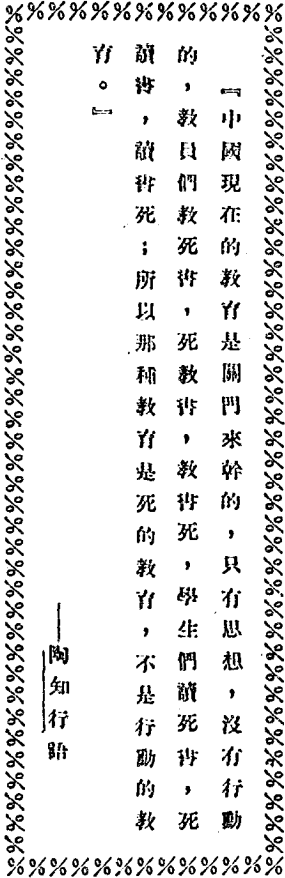 『中國現在的教育是關門來幹的，只有思想，沒有行動
的，教員們教死書，死教書，教書死，學生們讀死書，死
讀書，讀書死；所以那種教育是死的教育，不是行動的教
育。』
——陶知行語